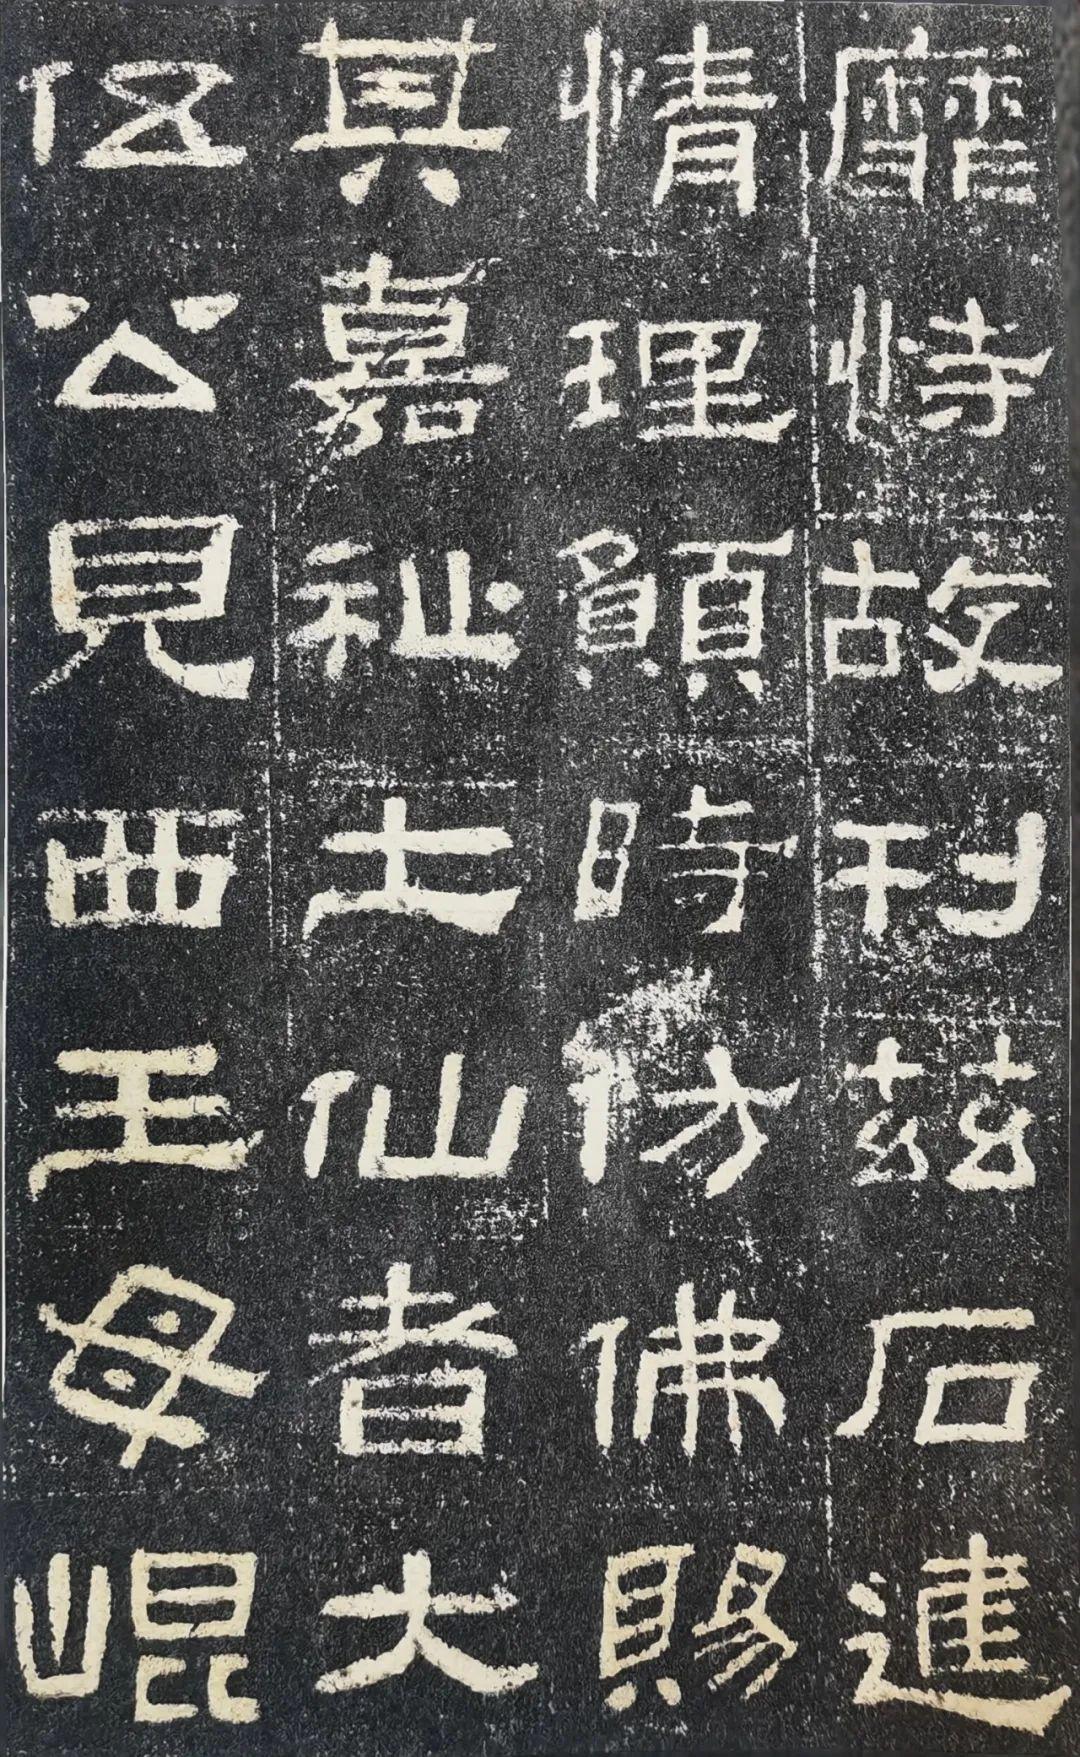 靡恃故刊茲石進
情理願時仿佛賜
其嘉祉土仙者大
伍公見西王母崐